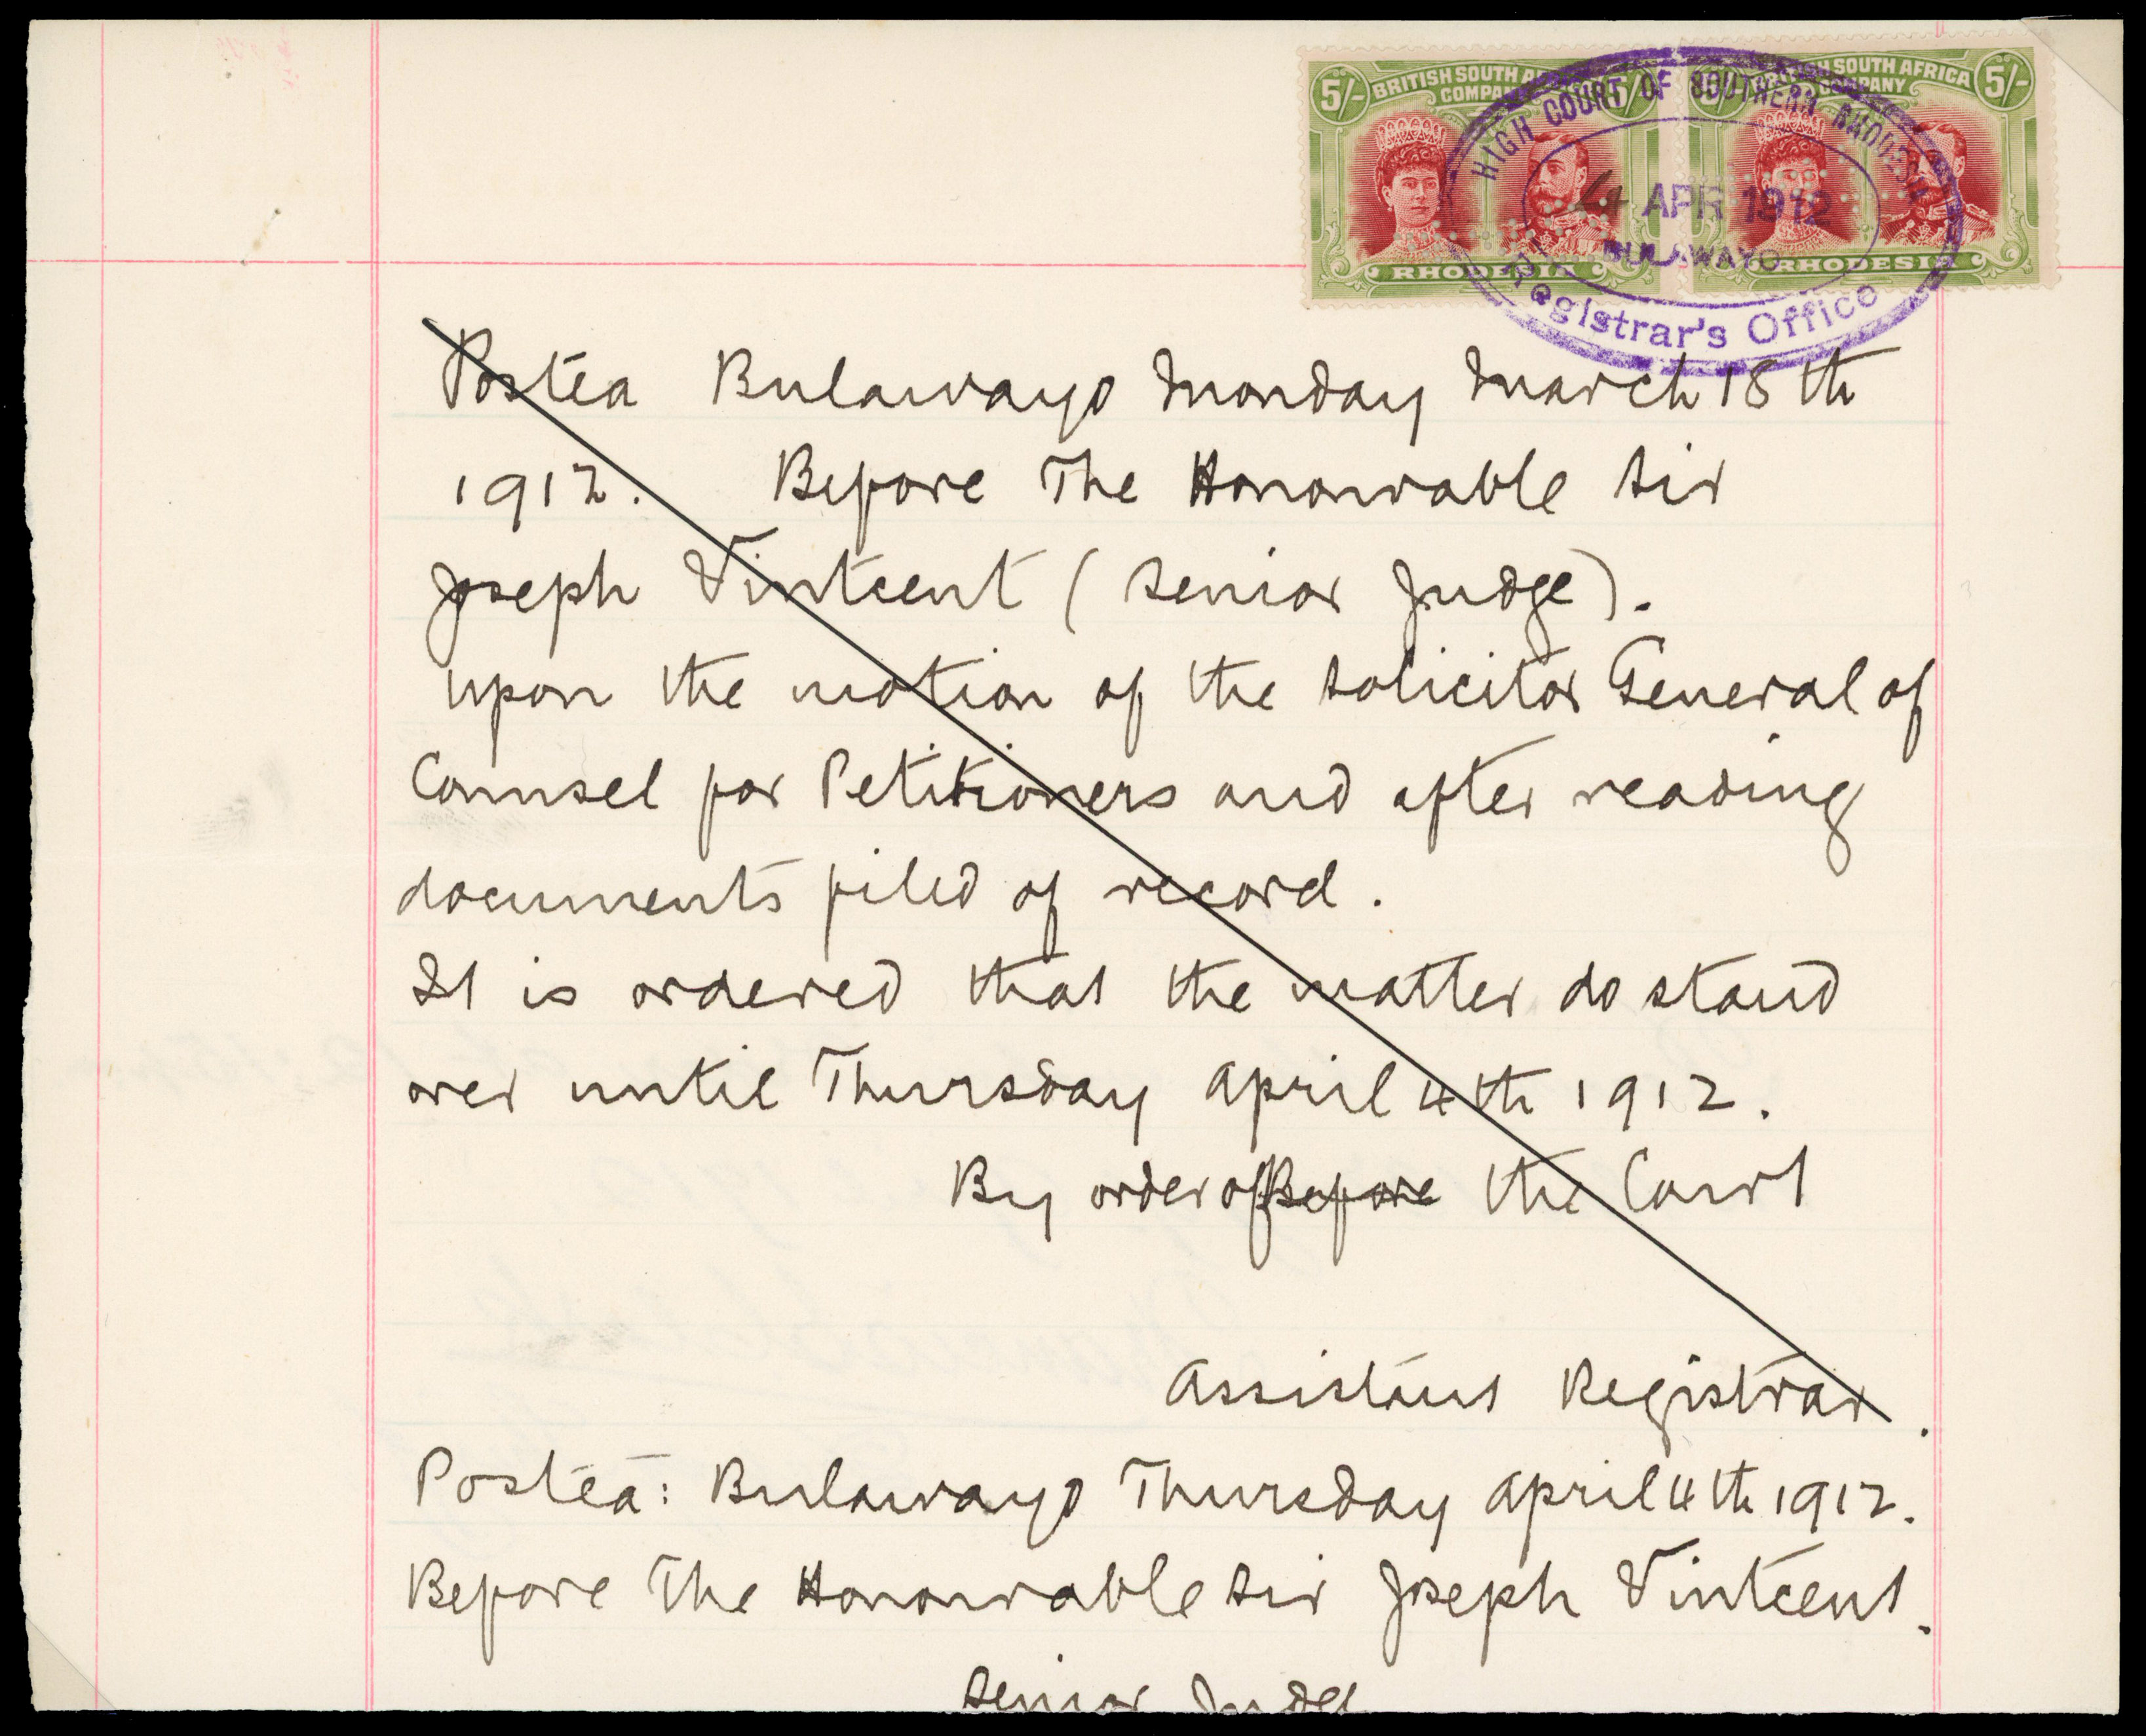 5/- BRITISH SOUTH AFRICA COMPANY 5/-
RHODESIA
BRITISH SOUTH AFRICA COMPANY 5/-
RHODESIA
HIGH COURT OF SOUTHERN RHODESIA
4 APR 1912
BULAWAYO
Registrar's Office
Postea Bulawayo Monday March 18th
1912. Before The Honourable Sir
Joseph Vintcent (Senior Judge).
upon the motion of the Solicitor General of
Counsel for Petitioners and after reading
documents filed of record.
It is ordered that the matter do stand
over until Thursday April 4th 1912.
By order of Before the Court
Assistant Registrar.
Postea: Bulawayo Thursday April 4th 1912.
Before The Honourable Sir Joseph Vintcent.
Senior Judge